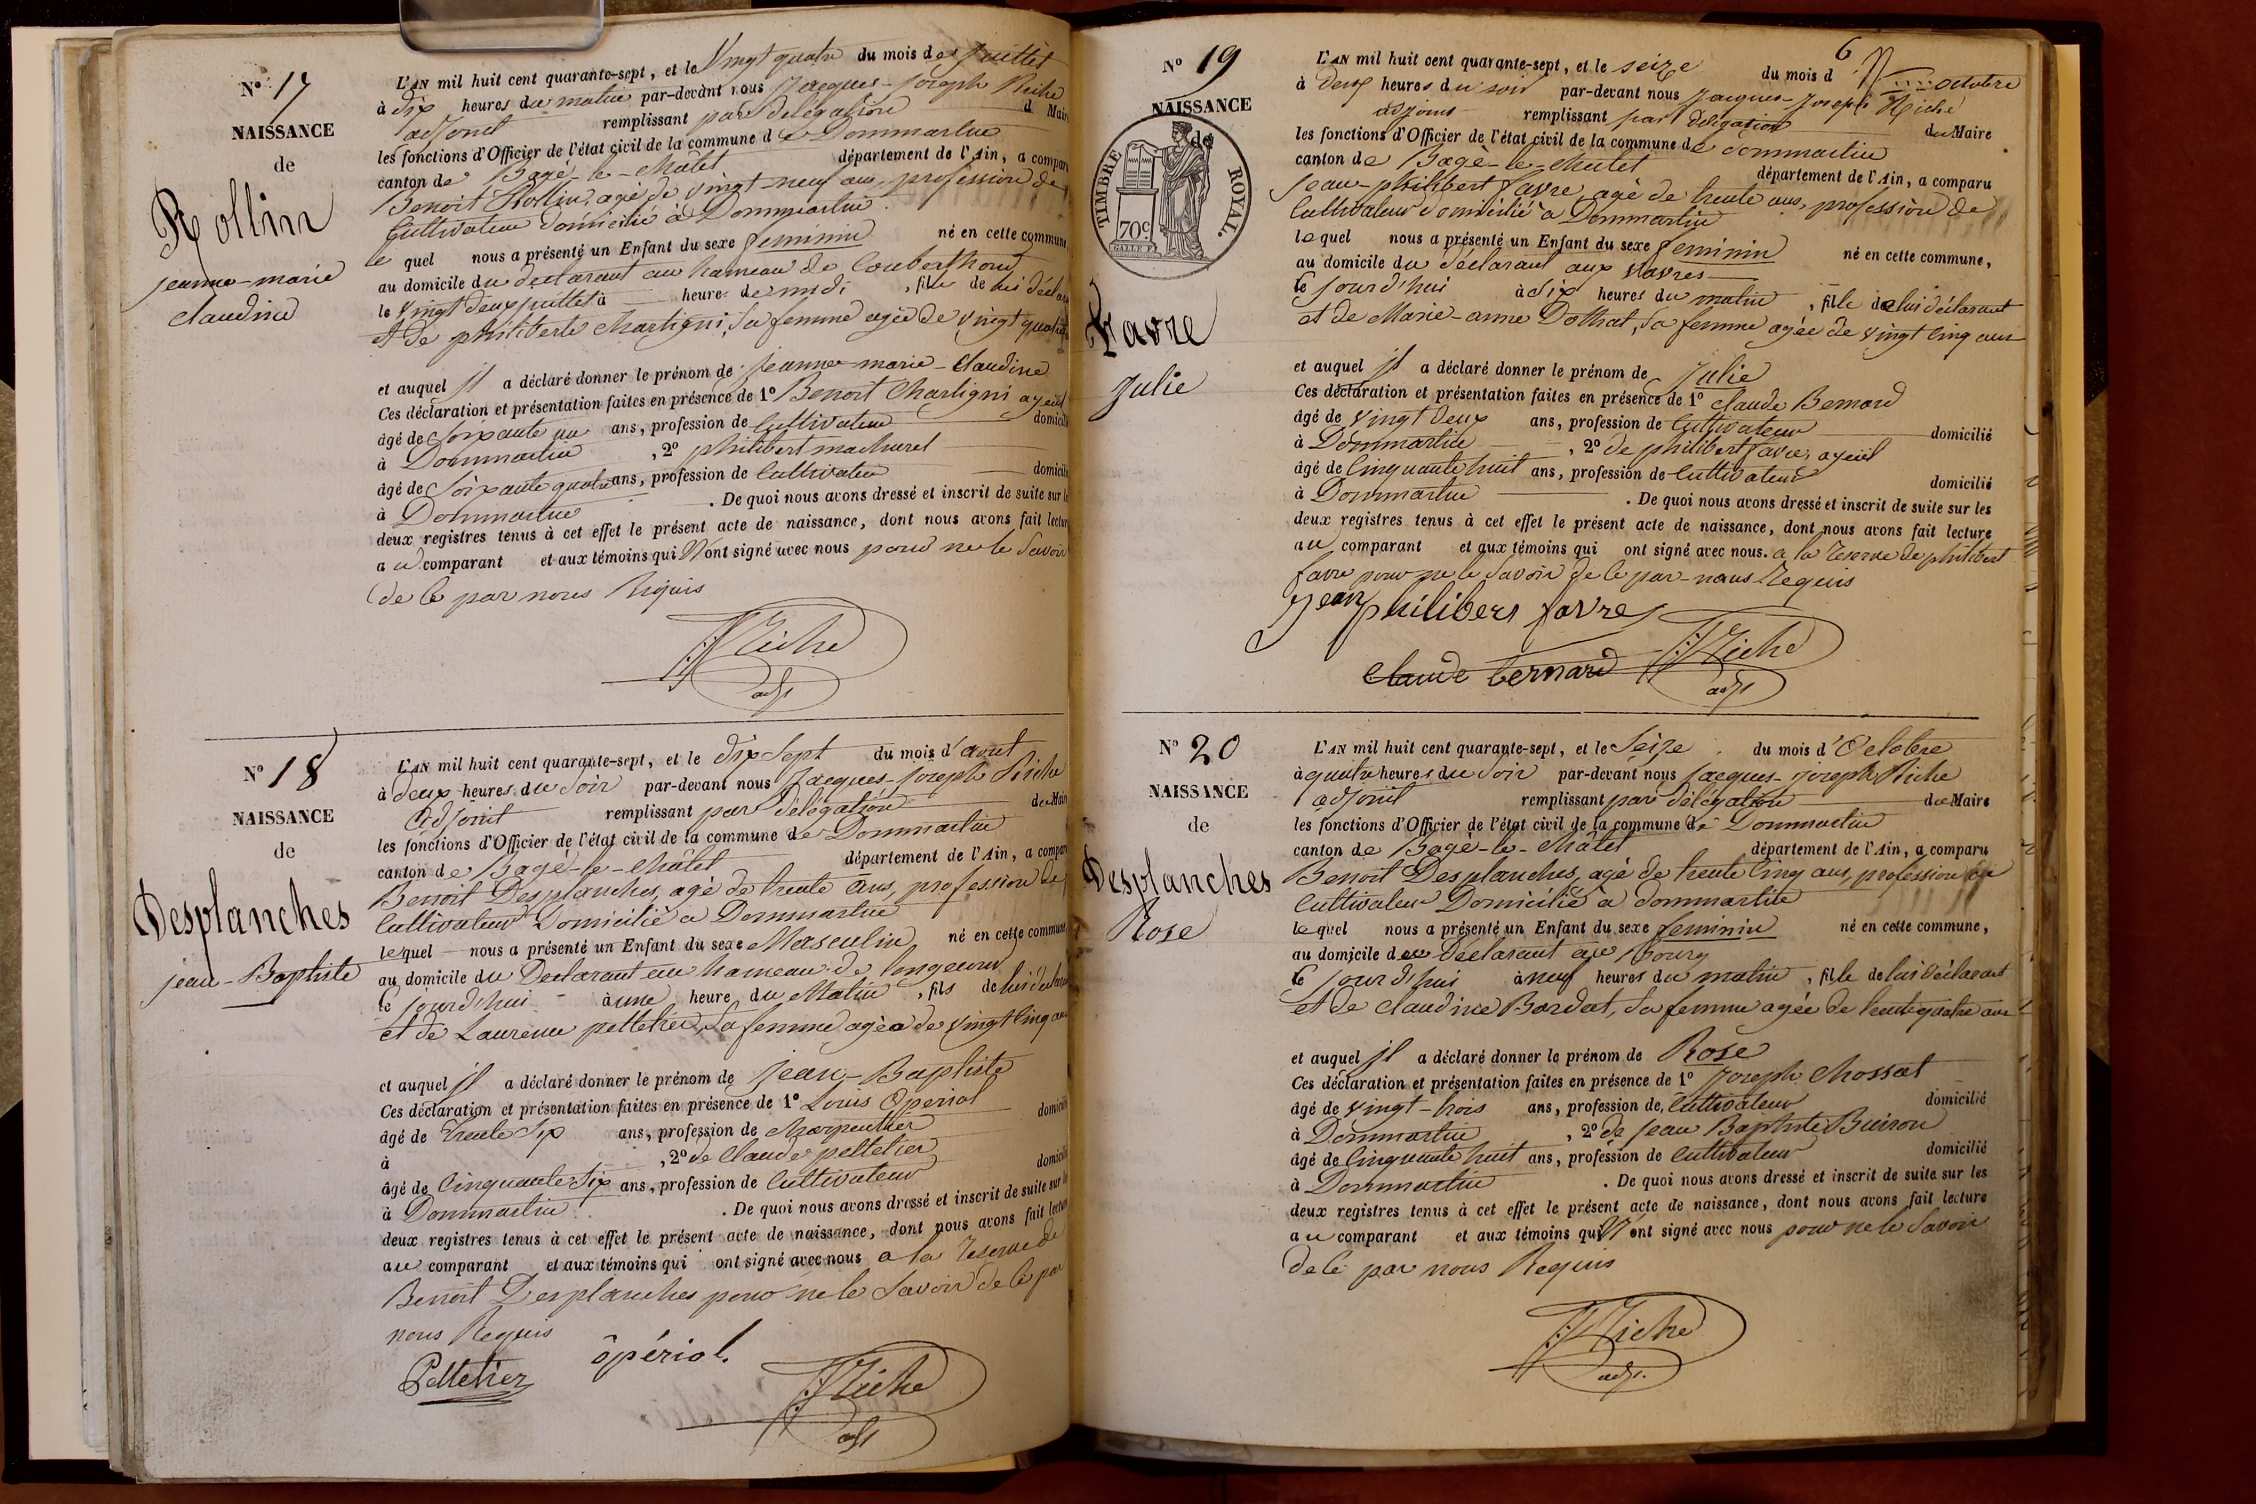 N° 17
NAISSANCE
de
Rollin
jeanne-marie
claudine
L'AN mil huit cent quarante-sept, et le Vingt quatre du mois de juillet
à dix heures du matin par-devant nous Jacques-Joseph Riche
adjoint remplissant par délégation d Mair
les fonctions d'Officier de l'état civil de la commune de Dommartin
canton de Bagé-le-Chatel département de l'Ain, a compar
Benoit Rollin, agé de vingt neuf ans, profession de
Cultivateur domicilié à Dommartin
le quel nous a présenté un Enfant du sexe feminin né en cette commune
au domicile du declarant au hameau de
le vingt deux juillet à heure de midi, fille de lui déclar
et de philiberte Chartigni, sa femme agée de vingt quatre
et auquel jl a déclaré donner le prénom de jeanne-marie-Claudine
Ces déclaration et présentation faites en présence de 1° Benoit Chartigni ayeul
âgé de Soixante un ans, profession de Cultivateur domicilié
à Dommartin, 2° philibert machurel
âgé de Soixante quatre ans, profession de Cultivateur domicilié
à Dommartin. De quoi nous avons dressé et inscrit de suite sur l
deux registres tenus à cet effet le présent acte de naissance, dont nous avons fait lectur
au comparant et aux témoins qui N'ont signé avec nous pour ne le Savoir
de ce par nous Requis
JJRiche
adjt
N° 18
NAISSANCE
de
Desplanches
jean-Baptiste
L'AN mil huit cent quarante-sept, et le dix Sept du mois d'aout
à deux heures du Soir par-devant nous Jacques-Joseph Riche
adjoint remplissant par délégation du Mair
les fonctions d'Officier de l'état civil de la commune de Dommartin
canton de Bagé-le-Châtel département de l'Ain, a compar
Benoit Desplanches, agé de trente ans, profession de
Cultivateur Domicilié a Dommartin
lequel nous a présenté un Enfant du sexe Masculin né en cette commune
au domicile du Declarant au hameau de
le jourd'hui à une heure du Matin, fils de lui declarant
et de Laurence pelletier, sa femme agée de vingt Cinq ans
et auquel jl a déclaré donner le prénom de jean-Baptiste
Ces déclaration et présentation faites en présence de 1° Louis Opériol
âgé de trente Six ans, profession de Charpentier domicilié
à , 2° de Claude pelletier
âgé de Cinquante Six ans, profession de Cultivateur domicilié
à Dommartin. De quoi nous avons dressé et inscrit de suite sur l
deux registres tenus à cet effet le présent acte de naissance, dont nous avons fait lectur
au comparant et aux témoins qui ont signé avec nous a la reserve de
Benoit Desplanches pour ne le Savoir de ce par
nous Requis
Pelletier opériol.
JJRiche
adjt
6
N° 19
NAISSANCE
de
TIMBRE ROYAL.
70c
Favre
Julie
L'AN mil huit cent quarante-sept, et le seize du mois d octobre
à deux heures du soir par-devant nous Jacques-Joseph Riche
adjoint remplissant par délégation du Maire
les fonctions d'Officier de l'état civil de la commune de Dommartin
canton de Bagé-le-Chatel département de l'Ain, a comparu
Jean-philibert favre, agé de trente ans, profession de
Cultivateur domicilié à Dommartin
lequel nous a présenté un Enfant du sexe feminin né en cette commune,
au domicile du déclarant aux
le jourd'hui à Six heures du matin, fille de lui déclarant
et de Marie-anne Dothat, sa femme agée de vingt Cinq ans
et auquel jl a déclaré donner le prénom de Julie
Ces déclaration et présentation faites en présence de 1° claude Bernard
âgé de vingt deux ans, profession de Cultivateur domicilié
à Dommartin, 2° de philibert favre, ayeul
âgé de Cinquante huit ans, profession de Cultivateur domicilié
à Dommartin. De quoi nous avons dressé et inscrit de suite sur les
deux registres tenus à cet effet le présent acte de naissance, dont nous avons fait lecture
au comparant et aux témoins qui ont signé avec nous. a la reserve de philibert
favre pour ne le Savoir de ce par-nous Requis
jean philibers favre
Claude bernard JJRiche
adjt
N° 20
NAISSANCE
de
Desplanches
Rose
L'AN mil huit cent quarante-sept, et le Seize du mois d'Octobre
à quatre heures du Soir par-devant nous Jacques-Joseph Riche
adjoint remplissant par délégation du Maire
les fonctions d'Officier de l'état civil de la commune de Dommartin
canton de Bagé-le-Châtel département de l'Ain, a comparu
Benoit Desplanches, agé de trente Cinq ans, profession de
Cultivateur Domicilié à dommartin
lequel nous a présenté un Enfant du sexe feminin né en cette commune,
au domicile du Déclarant au Bourg
le jourd'hui à neuf heures du matin, fille de lui déclarant
et de claudine Bardat, sa femme agée de trente quatre ans
et auquel jl a déclaré donner le prénom de Rose
Ces déclaration et présentation faites en présence de 1° Joseph Chossat
âgé de vingt-trois ans, profession de Cultivateur domicilié
à Dommartin, 2° de Jean Baptiste Buiron
âgé de Cinquante huit ans, profession de Cultivateur domicilié
à Dommartin. De quoi nous avons dressé et inscrit de suite sur les
deux registres tenus à cet effet le présent acte de naissance, dont nous avons fait lecture
au comparant et aux témoins qui N'ont signé avec nous pour ne le Savoir
de ce par nous Requis
JJRiche
adjt.